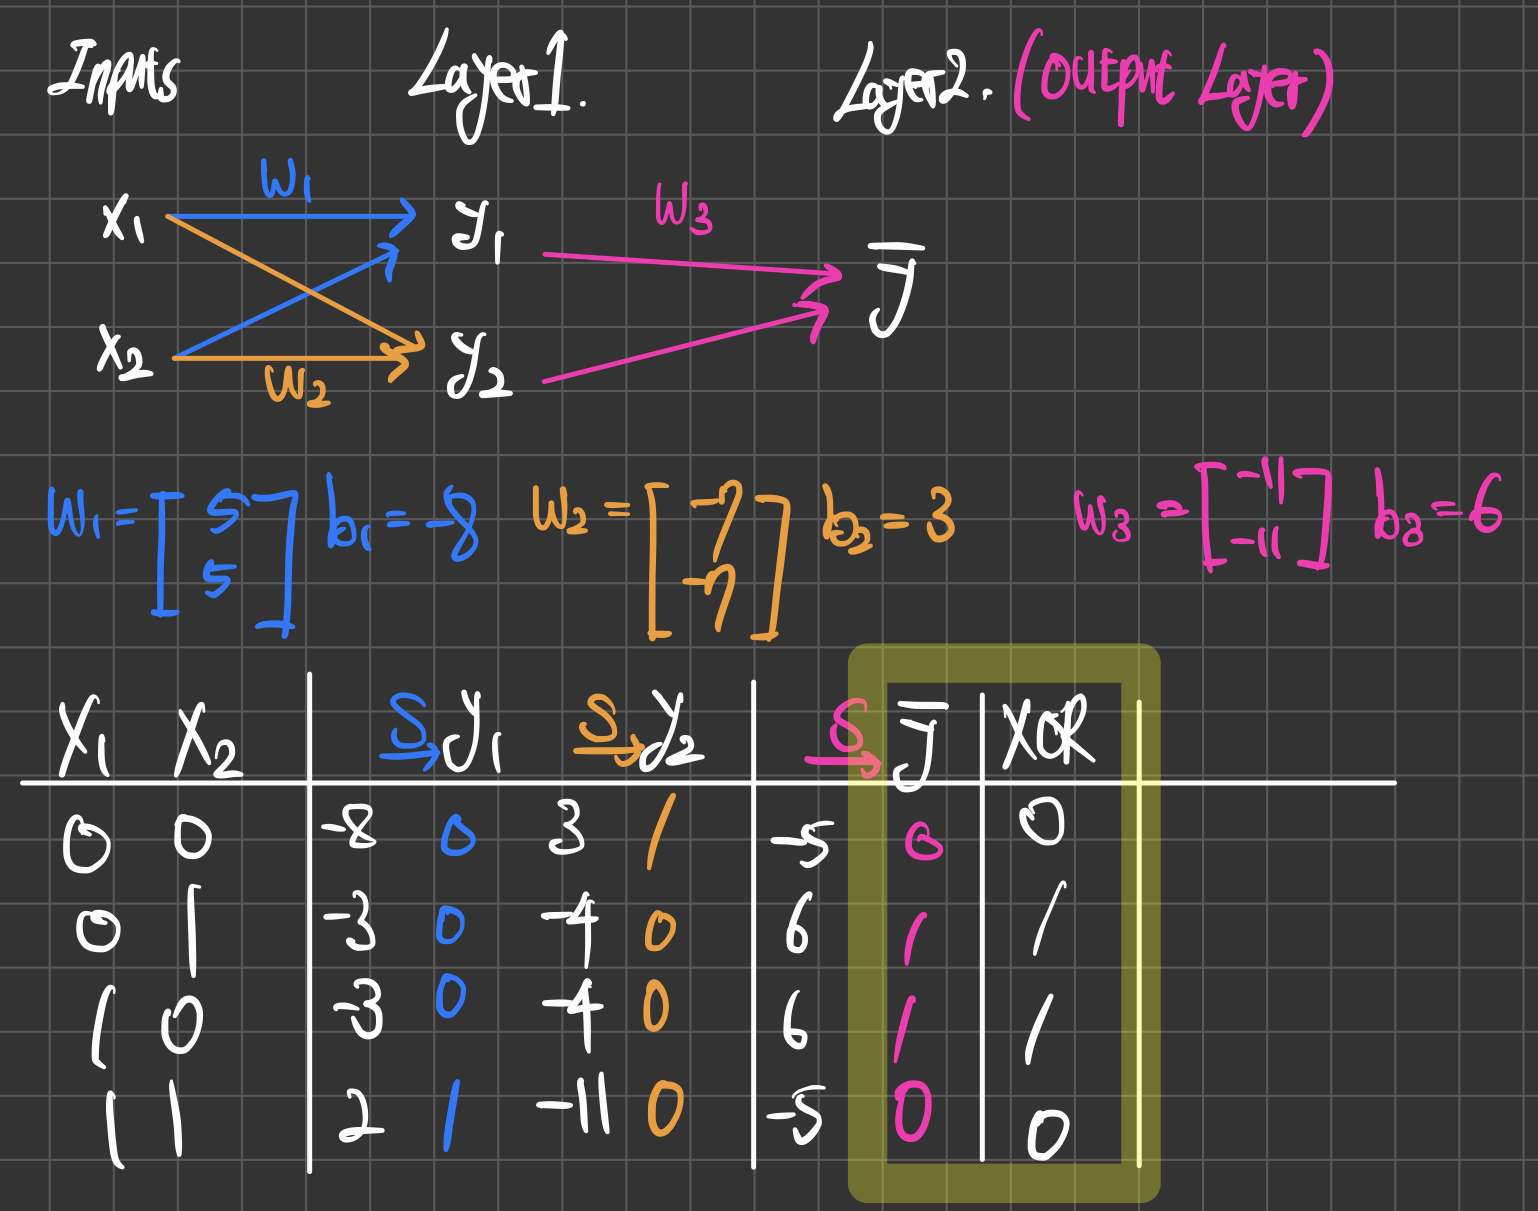 Inputs Layer 1. Layer 2. (Output Layer)
W1 W3
X1 y1 y̅
X2 y2
W2
W1 = [5 5] b1 = -8 W2 = [-7 -7] b2 = 3 W3 = [-11 -11] b3 = 6
X1 X2 S→ y1 S→ y2 S→ y̅ XOR
0 0 -8 0 3 1 -5 0 0
0 1 -3 0 -4 0 6 1 1
1 0 -3 0 -4 0 6 1 1
1 1 2 1 -11 0 -5 0 0